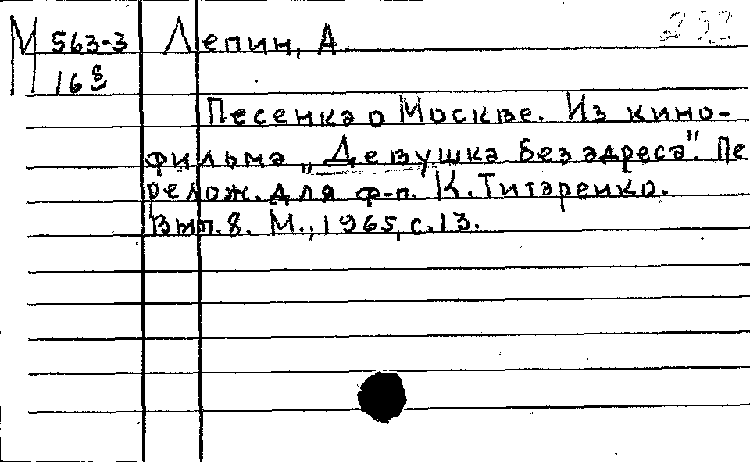 М 563-3 Лепин, А.
16 8
Песенка о Москве. Из кино-
фильма „Девушка без адреса". Пе
релож. для ф-п. К. Титаренко.
Вып. 8. М., 1965, с. 13.